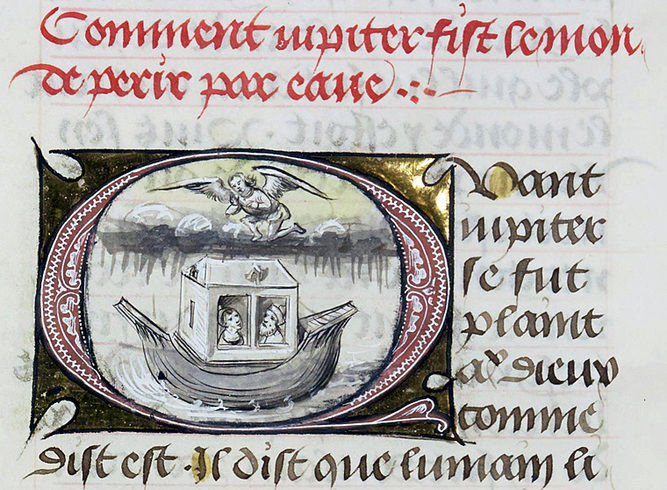 Comment iupiter fist le mon
de perir par eaue
Quant
iupiter
se fut
plaint
aux dieux
comme
dist est. Il dist que lumain li